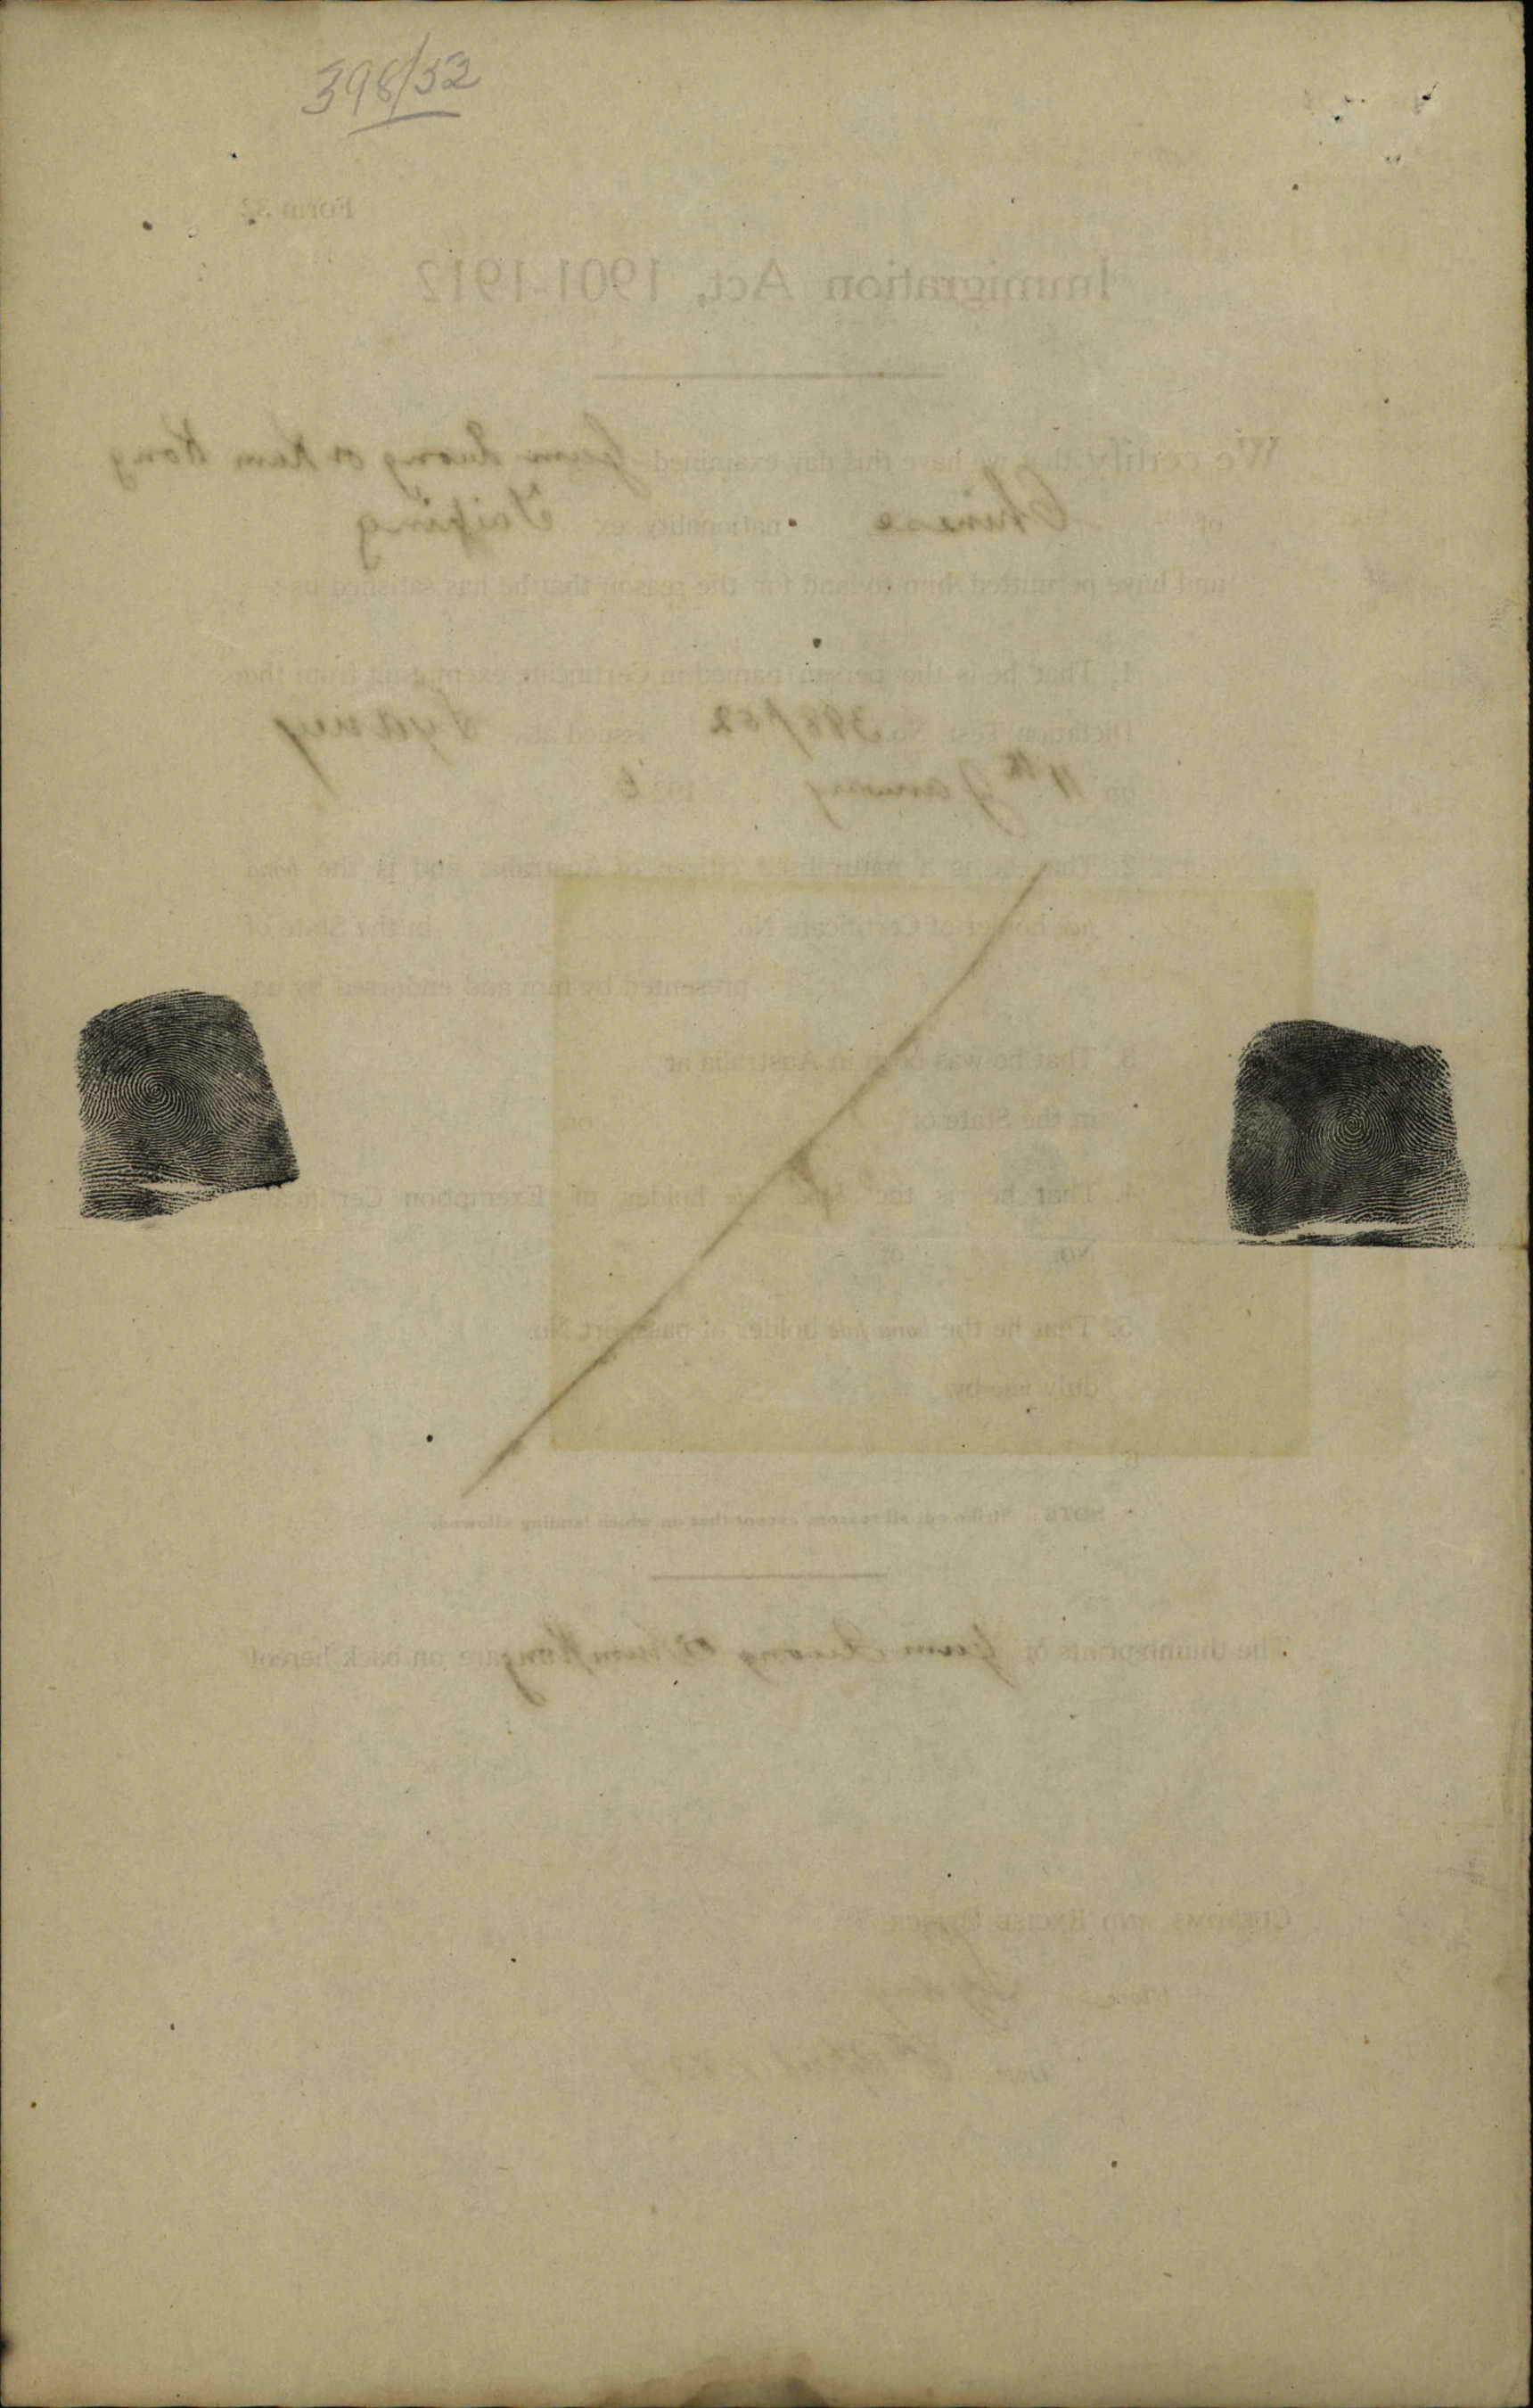 398/52
Form 32
Immigration Act, 1901-1912
We certify that we have this day examined Gum Quong or Kum Kong
of Chinese nationality ex Taiping
and have permitted him to land for the reason that he has satisfied us:—
1. That he is the person named in Certificate exempting from the
Dictation Test No. 398/52 issued at Sydney
on 11th January 1926
2. That he is a naturalized citizen of Australia and is the bona
fide holder of Certificate No. in the State of
presented by him and endorsed by us
3. That he was born in Australia at
in the State of on
4. That he is the bona fide holder of Exemption Certificate
No. of
5. That he the bona fide holder of passport No.
duly
6.
NOTE: Strike out all reasons except that on which landing allowed.
The thumbprints of Gum Quong or Kum Kong are on back hereof
CUSTOMS AND EXCISE OFFICE
Place Sydney
Date April